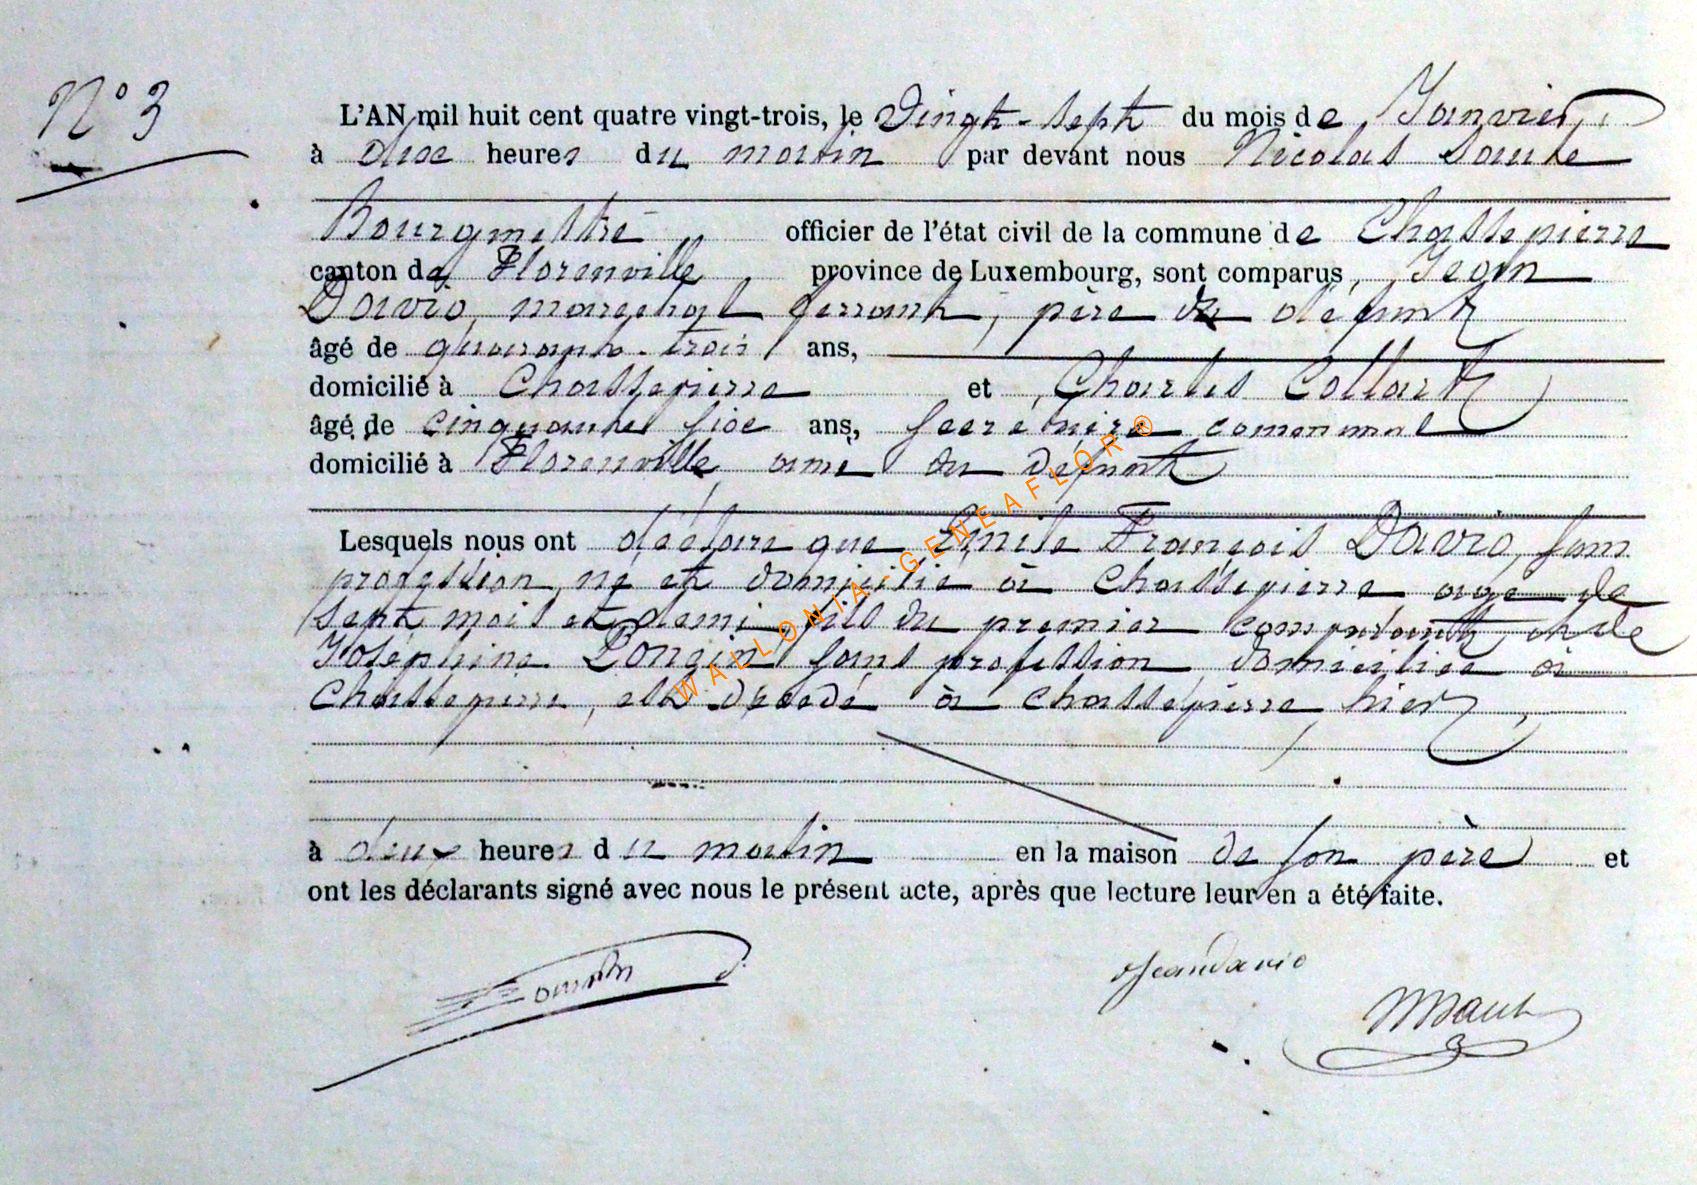 N° 3
L'AN mil huit cent quatre vingt-trois, le Vingt-sept du mois de Janvier
à heures du matin par devant nous Nicolas
Bourgmestre officier de l'état civil de la commune de Chassepierre
canton de Florenville province de Luxembourg, sont comparus, Jean
Davio, marechal ferrant, père du défunt
âgé de quarante-trois ans,
domicilié à Chassepierre et Charles Collart
âgé de cinquante six ans, secrétaire communal
domicilié à Florenville ami du défunt
Lesquels nous ont déclaré que Emile François Davio, sans
profession, né et domicilié à Chassepierre agé de
sept mois et demi, fils du premier comparant, et de
Joséphine Pongin sans profession, domiciliée à
Chassepierre, est décédé à Chassepierre hier,
à deux heures du matin en la maison de son père et
ont les déclarants signé avec nous le présent acte, après que lecture leur en a été faite.
Jean Davio
WALLONIA-GENEAFLOR®